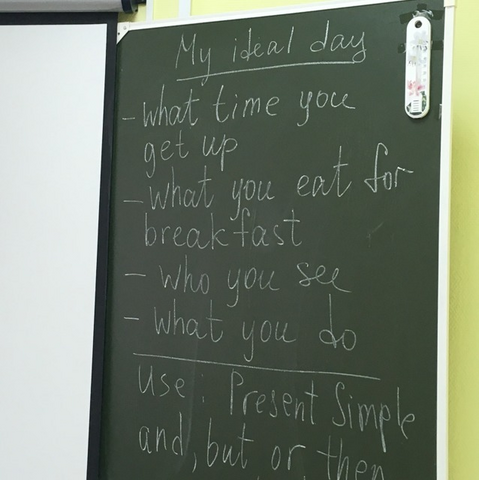 My ideal day
- what time you
get up
- what you eat for
breakfast
- who you see
- what you do
Use: Present Simple
and, but or then